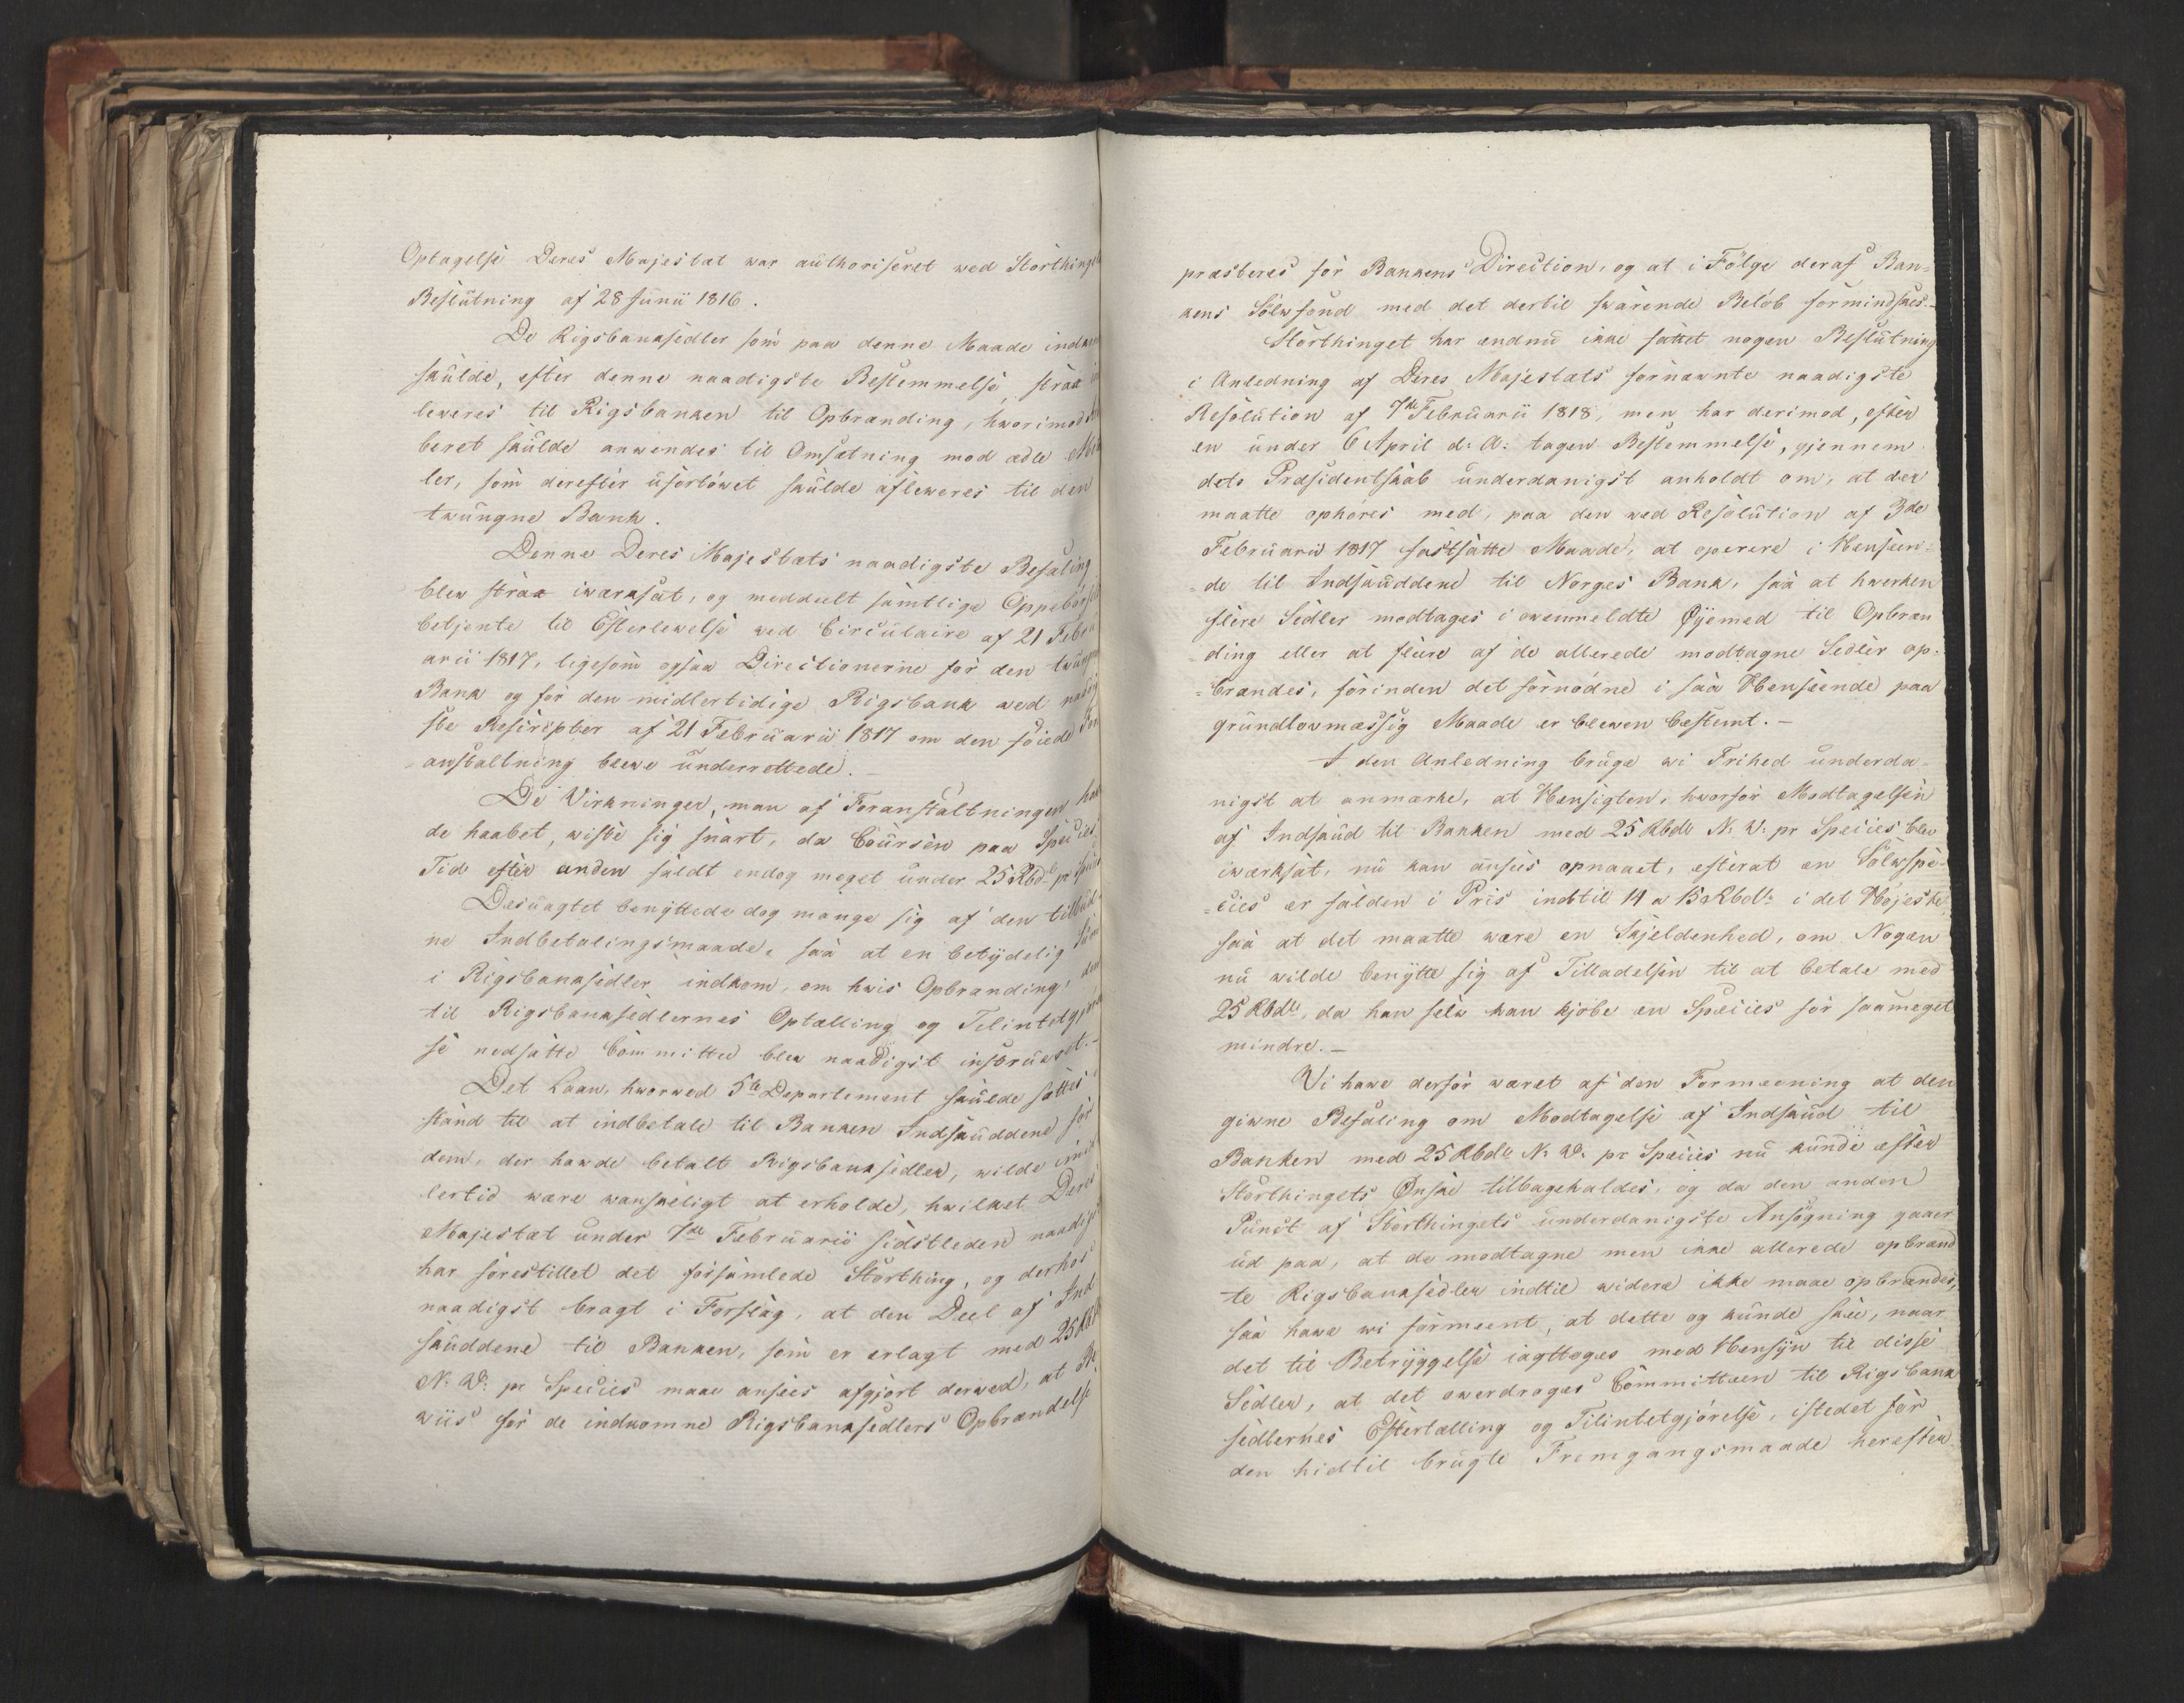 Optagelse Deres Majestæt var authoriseret ved Storthingets
Beslutning af 28 Junii 1816.
De Rigsbanksedler som paa denne Maade indkom
skulde, efter denne naadigste Bestemmelse, strax
leveres til Rigsbanken til Opbrænding, hvorimod
beret skulde anvendes til Omsætning mod ædle
ler, som derefter ufortøvet skulde afleveres til den
tvungne Bank.
Denne Deres Majestæts naadigste Befaling
blev strax iværksat, og meddeelt samtlige Oppebørsels
betjente til Efterlevelse ved Circulaire af 21 Febru
arii 1817, ligesom ogsaa Directionerne for den tvungne
Bank og for den midlertidige Rigsbank ved naadig
ste Rescripter af 21 Februarii 1817 om den føiede For
anstaltning bleve underrettede.-
De Virkninger, man af Foranstaltningen hav
de haabet, viste sig snart, da Coursen paa Species
Tid efter anden faldt endog meget under 25 Rbdr pr Species
Desuagtet benyttede dog mange sig af den tilbud
ne Indbetalingsmaade, saa at en betydelig Sum
i Rigsbanksedler indkom, om hvis Opbrænding, den
til Rigsbanksedlernes Optælling og Tilintetgjørel
se nedsatte Committee blev naadigst instrueret.-
Det Laan, hvorved 5te Departement skulde sættes
stand til at indbetale til Banken Indskuddene for
dem, der havde betalt Rigsbanksedler, vilde imid
lertid være vanskeligt at erholde, hvilket Deres
Majestæt under 7de Februarii sidstleden naadigst
har forestillet det forsamlede Storthing, og derhos
naadigst bragt i Forslag, at den Deel af Ind
skuddene til Banken, som er erlagt med 25 Rbd
N: V: pr Species maae ansees afgjort derved, at Be
viis for de indkomne Rigsbanksedlers Opbrændelse
præsteres for Bankens Direction, og at i Følge deraf Ban-
kens Sølvfond med det dertil svarende Beløb formindskes.-
Storthinget har endnu ikke fattet nogen Beslutning
i Anledning af Deres Majestæts fornævnte naadigste
Resolution af 7de Februarii 1818, men har derimod, efter
en under 6 April d: A: tagen Bestemmelse, gjennem
dets Præsidentskab underdanigst anholdt om, at der
maatte ophøres med, paa den ved Resolution af 3de
Februarii 1817 fastsatte Maade, at operere i Henseen-
de til Indskuddene til Norges Bank, saa at hverken
flere Sedler modtages i ovenmeldte Øyemed til Opbræn
ding eller at flere af de allerede modtagne Sedler op-
brændes, førinden det fornødne i saa Henseende paa
grundlovmæssig Maade er bleven bestemt.-
I den Anledning bruge vi Frihed underda-
nigst at anmærke, at Hensigten, hvorfor Modtagelsen
af Indskud til Banken med 25 Rbdr N: V: pr Species blev
iværksat, nu kan ansees opnaaet, efterat en Sølvspe-
cies er falden i Pris indtil 14 a 15 Rbdlr i det Højeste,
saa at det maatte være en Sjeldenhed, om Nogen
nu vilde benytte sig af Tilladelsen til at betale med
25 Rbdlr, da han selv kan kjøbe en Species for saameget
mindre.-
Vi have derfor været af den Formeening at den
givne Befaling om Modtagelse af Indskud til
Banken med 25 Rbdlr N: V: pr Species nu kunde efter
Storthingets Ønske tilbagekaldes, og da den anden
Punct af Storthingets underdanigste Ansøgning gaaer
ud paa, at de modtagne men ikke allerede opbrænd
te Rigsbanksedler indtil videre ikke maae opbrændes,
saa have vi formeent, at dette og kunde skee, naar
det til Betryggelse iagttoges med Hensyn til disse
Sedler, at det overdroges Committeen til Rigsbank
sedlernes Eftertælling og Tilintetgjørelse, istedet for
den hidtil brugte Fremgangsmaade herefter